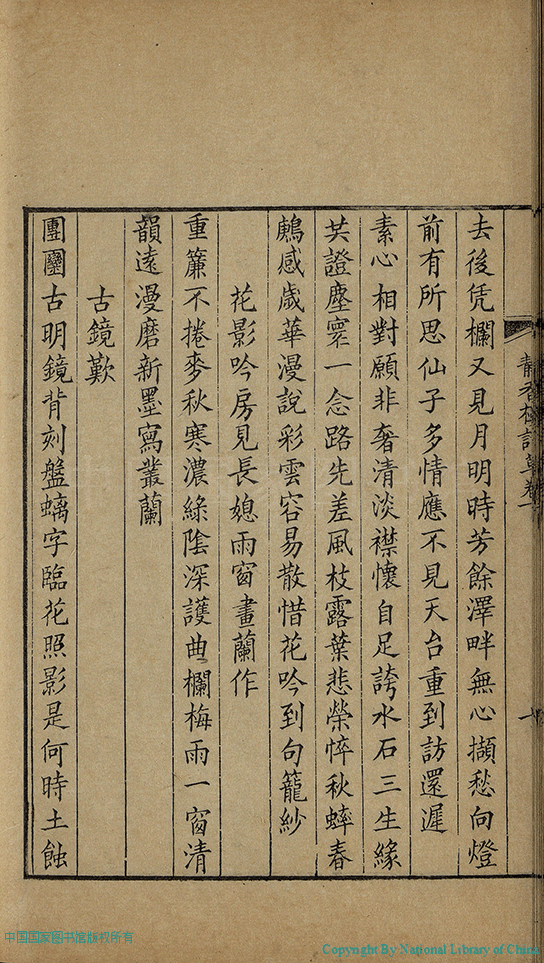 去後凭欄又見月明時芳餘澤畔無心擷愁向燈
前有所思仙子多情應不見天台重到訪還遲
素心相對願非奢清淡襟懷自足誇水石三生緣
共證塵寰一念路先差風枝露葉悲榮悴秋蟀春
鷓感歲華漫說彩雲容易散惜花吟到句籠紗
花影吟房見長媳雨窗畫蘭作
重簾不捲麥秋寒濃綠陰深護曲欄梅雨一窗清
韻遠漫磨新墨寫叢蘭
古鏡歎
團圞古明鏡背刻盤螭字臨花照影是何時土蝕
中国国家图书馆版权所有
Copyright By National Library of China